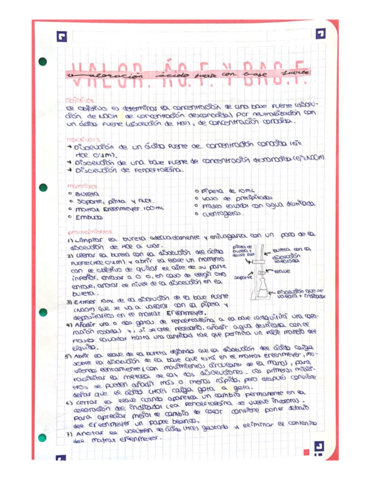 VALOR. ÁC.F. Y BAS.F.
valoración ácido fuerte con base fuerte
objetivo
El objetivo es determinar la concentración de una base fuerte (disolu-
ción de NaOH de concentración desconocida) por neutralización con
un ácido fuerte (disolución de HCl, de concentración conocida).
→ Disolución de un ácido fuerte de concentración conocida (en
HCl 0,1M).
→ Disolución de una base fuerte de concentración desconocida (en NaOH)
→ Disolución de fenolftaleína.
materiales
o Bureta
o Soporte, pinza y nuez.
o matraz Erlenmeyer 100ml
o Embudo
o Pipeta de 10mL
o vaso de precipitados
o matraz lavador con agua destilada
o cuentagotas
procedimiento
1) Limpiar la bureta adecuadamente y enjuagarla con un poco de la
disolución de HCl a usar.
2) Llenar la bureta con la disolución del ácido
fuerte (HCl 0,1M) y abrir la llave un momento
con el objetivo de quitar el aire de su parte
inferior, enrasar a 0 o, en caso de
enrase, anotar el nivel de la disolución en la
bureta.
pinza de
bureta
bureta con la
disolución
soporte
llave
disolución de la
base que se va a
valorar + indicador
3) Echar 10mL de la disolución de la base fuerte
(NaOH) que se va a valorar con la pipeta y
depositarlos en el matraz Erlenmeyer.
4) Añadir una o dos gotas de fenolftaleína a la base (adquirirá una colo-
ración rosada) y, si fuese necesario, añadir agua destilada con el
matraz lavador hasta una cantidad tal que permita un manejo del
líquido.
5) Abrir la llave de la bureta dejando que la disolución del ácido caiga
sobre la disolución de la base que está en el matraz Erlenmeyer, mo-
viendo suavemente (con movimientos circulares de la mano), para
facilitar la mezcla de las dos disoluciones. Los primeros mili-
litros se pueden añadir más o menos rápido, pero después conviene
dejar que el ácido vaya caiga gota a gota.
6) Cerrar la llave cuando aparezca un cambio permanente en la
coloración del indicador (la fenolftaleína se vuelve incolora).
Para apreciar mejor el cambio de color conviene poner debajo
del Erlenmeyer un papel blanco.
7) Anotar el volumen de ácido (HCl) gastado y eliminar el contenido
del matraz Erlenmeyer.